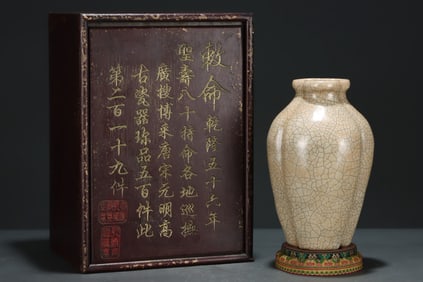 敕命乾隆五十六年
聖壽八十特命各地巡撫
廣搜博采唐宋元明高
古瓷器珍品五百件此
第二百一十九件